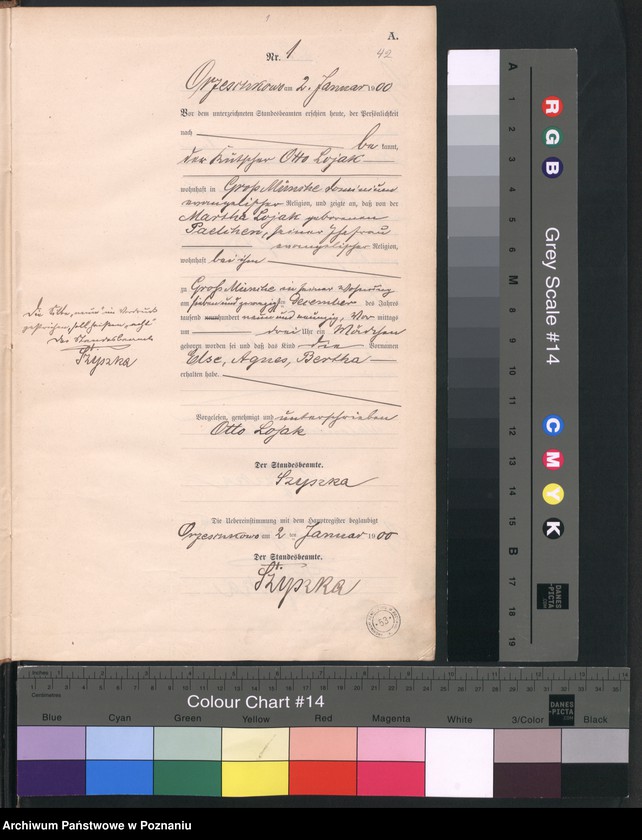 A.
42
Nr. 1
Orzeschkowo am 2. Januar 1900
Vor dem unterzeichneten Standesbeamten erschien heute, der Persönlichkeit
nach be kannt,
der Kutscher Otto Lojak
wohnhaft in Groß Münche dominium
evangelischer Religion, und zeigte an, daß von der
Martha Lojak geborenen
seiner Ehefrau
evangelischer Religion,
wohnhaft bei ihm
zu Groß Münche in seiner Wohnung
am sieben und zwanzigsten December des Jahres
tausend hundert neun und neunzig, Vor mittags
um drei Uhr ein Mädchen
geboren worden sei und daß das Kind die Vornamen
Else, Agnes, Bertha
erhalten habe.
Die
gestrichen, soll heißen, acht
Der Standesbeamte
Szyszka
Vorgelesen, genehmigt und unterschrieben
Otto Lojak
Der Standesbeamte.
Szyszka
Die Uebereinstimmung mit dem Hauptregister beglaubigt
Orzeschkowo am 2 ten Januar 1900
Der Standesbeamte.
Szyszka
83
A 1 2 3 4 5 6 M 8 9 10 11 12 13 14 15 B 17 18 19
R G B
Grey Scale #14
C M Y K
DANES-PICTA.COM
Inches 1 2 3 4 5 6 7 8 9 10 11 12 13 14 15
Centimetres
Colour Chart #14
DANES-PICTA.COM
Blue Cyan Green Yellow Red Magenta White 3/Color Black
Archiwum Państwowe w Poznaniu